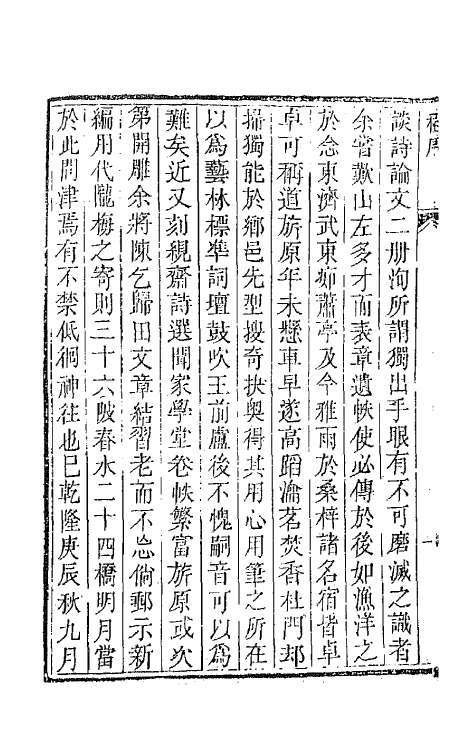 程序
談詩論文二册洵所謂獨出手眼有不可磨滅之識者
余嘗歎山左多才而表章遺帙使必傳於後如漁洋之
於念東濟武東癡蕭亭及今雅雨於桑梓諸名宿皆卓
卓可稱道旂原年未懸車早遂高蹈瀹茗焚香杜門却
掃獨能於鄉邑先型搜奇抉奥得其用心用筆之所在
以爲藝林標凖詞壇鼓吹王前盧後不愧嗣音可以爲
難矣近又刻硯齋詩選聞家學堂卷帙繁富旂原或次
第開雕余將陳乞歸田文章結習老而不忘倘郵示新
編用代隴梅之寄則三十六陂春水二十四橋明月當
於此問津焉有不禁低徊神往也已乾隆庚辰秋九月